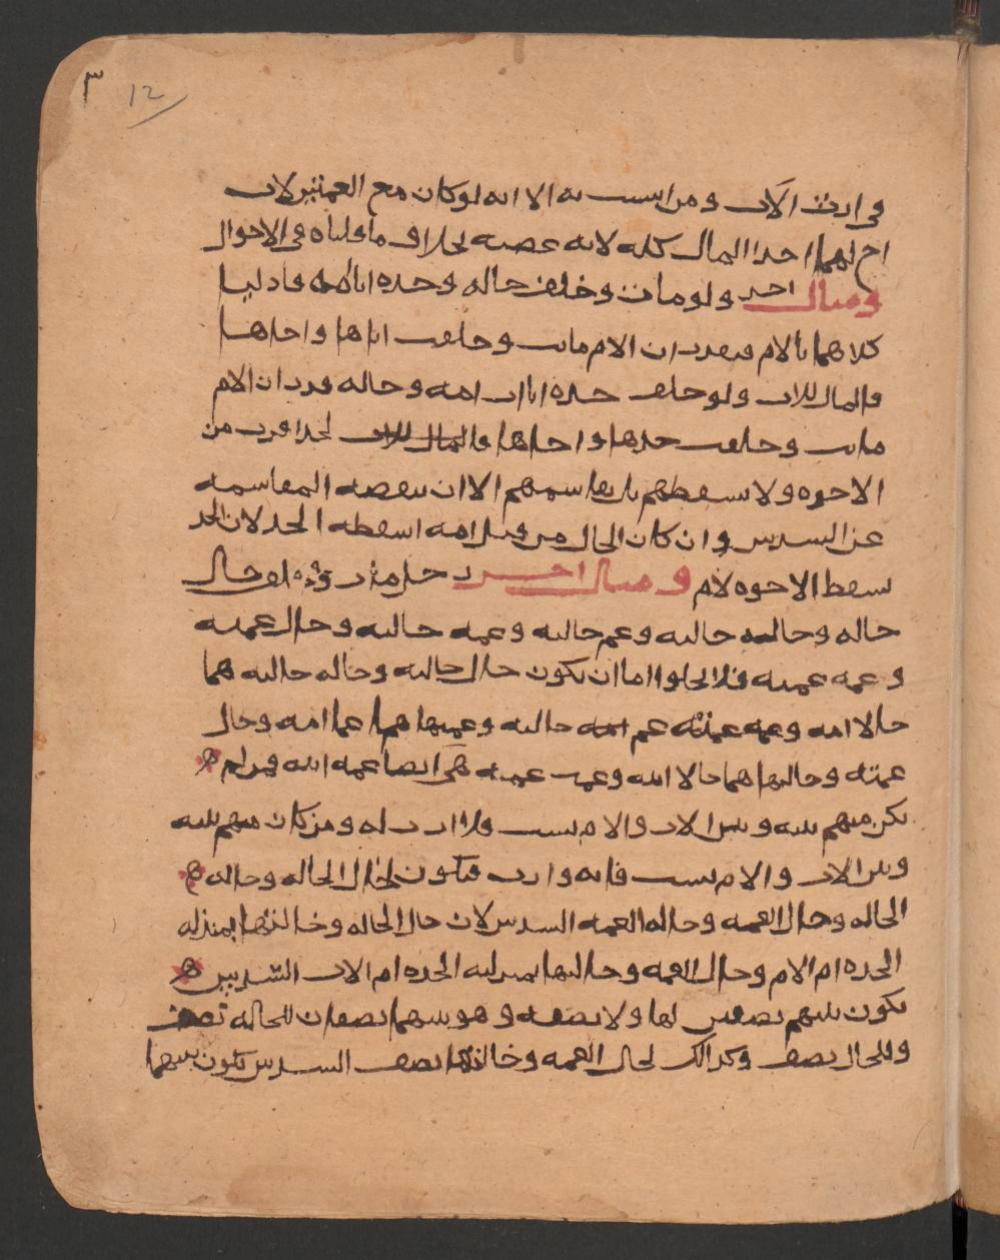 ٣ 12
في ارث الاب ومن انتسب به الا انه لو كان مع العمتين لاب
اخ لهما اخذ المال كله لانه عصبه بخلاف ما قلناه في الاخوال
ومثال اخر ولو مات وخلف خاله وجده ابا امه فادليا
كلاهما بالام فيقدر ان الام ماتت وخلفت اباها واخاها
فالمال للاب ولو خلف جده ابا اب امه وخاله قدر ان الام
ماتت وخلفت جدها واخاها فالمال للاب لجد اقرب من
الاخوه ولا يسقطهم بل يقاسمهم الا ان تنقصه المقاسمه
عن السدس وان كان الخال من قبل امه اسقطه الجد لان الجد
يسقط الاخوه لام ومثال اخر رجل مات وخلف خال
خاله وخالة خالته وعم خالته وعمه خالته وخال عمته
وعمه عمته فلا يخلوا اما ان يكون خال خالته وخاله خالته هما
خالا امه وعمه عمته عم امه خالته وعمتها هما عما امه وخال
عمته وخالتها هما خالا ابيه وعمت عمته هي ايضا عمه ابيه فمن لم
يكن منهم بينه وبين الاب والام نسب فلا ارث له ومن كان منهم بينه
وبين الاب والام نسب فانه وارث فتكون لخال الخاله وخاله
الخاله وخال العمه وخاله العمه السدس لان خال الخاله وخالتها بمنزله
الجده ام الام وخال العمه وخالتها بمنزله الجده ام الاب السدس
يكون بينهم نصفين لها ولا نصفه وهو بينهما نصفان للخاله نصف
وللخال نصف وكذالك لخال العمه وخالتها نصف السدس يكون بينهما